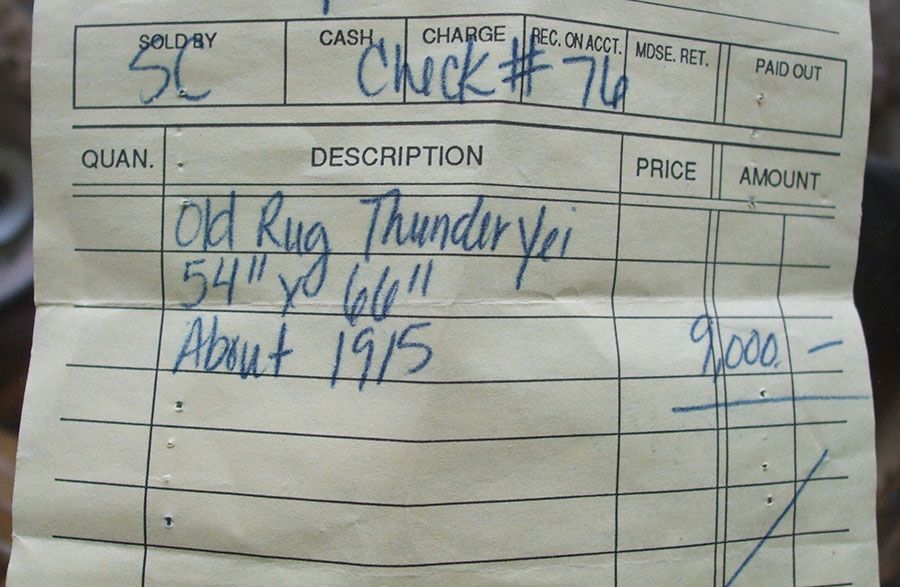 SOLD BY CASH CHARGE REC. ON ACCT. MDSE. RET. PAID OUT
SC Check # 76
QUAN. DESCRIPTION PRICE AMOUNT
Old Rug Thunder Yei
54" x 66"
About 1915 9,000. –